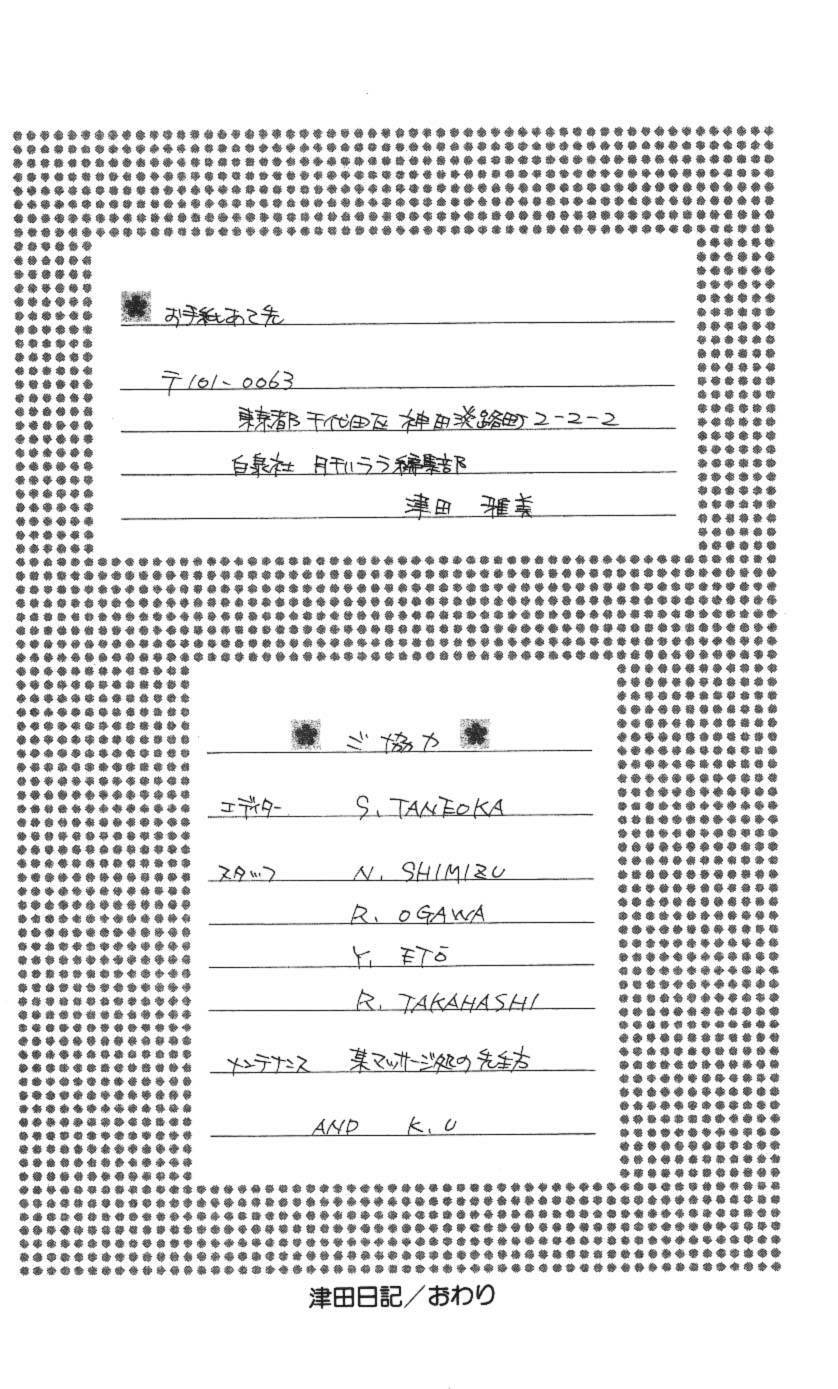 お手紙あて先
〒101-0063
東京都千代田区 神田淡路町2-2-2
白泉社 月刊ララ編集部
津田 雅美
ご協力
エディター S. TANEOKA
スタッフ N. SHIMIZU
R. OGAWA
Y. ETŌ
R. TAKAHASHI
メンテナンス 某マッサージ処の先生方
AND K. U
津田日記／おわり